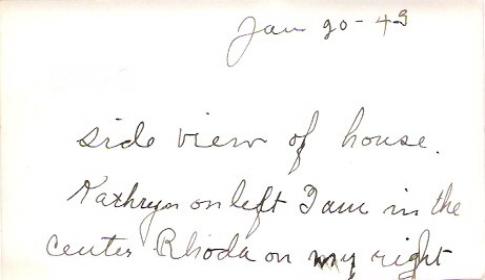 Jan 20-49
side view of house.
Kathryn on left I am in the
center Rhoda on my right